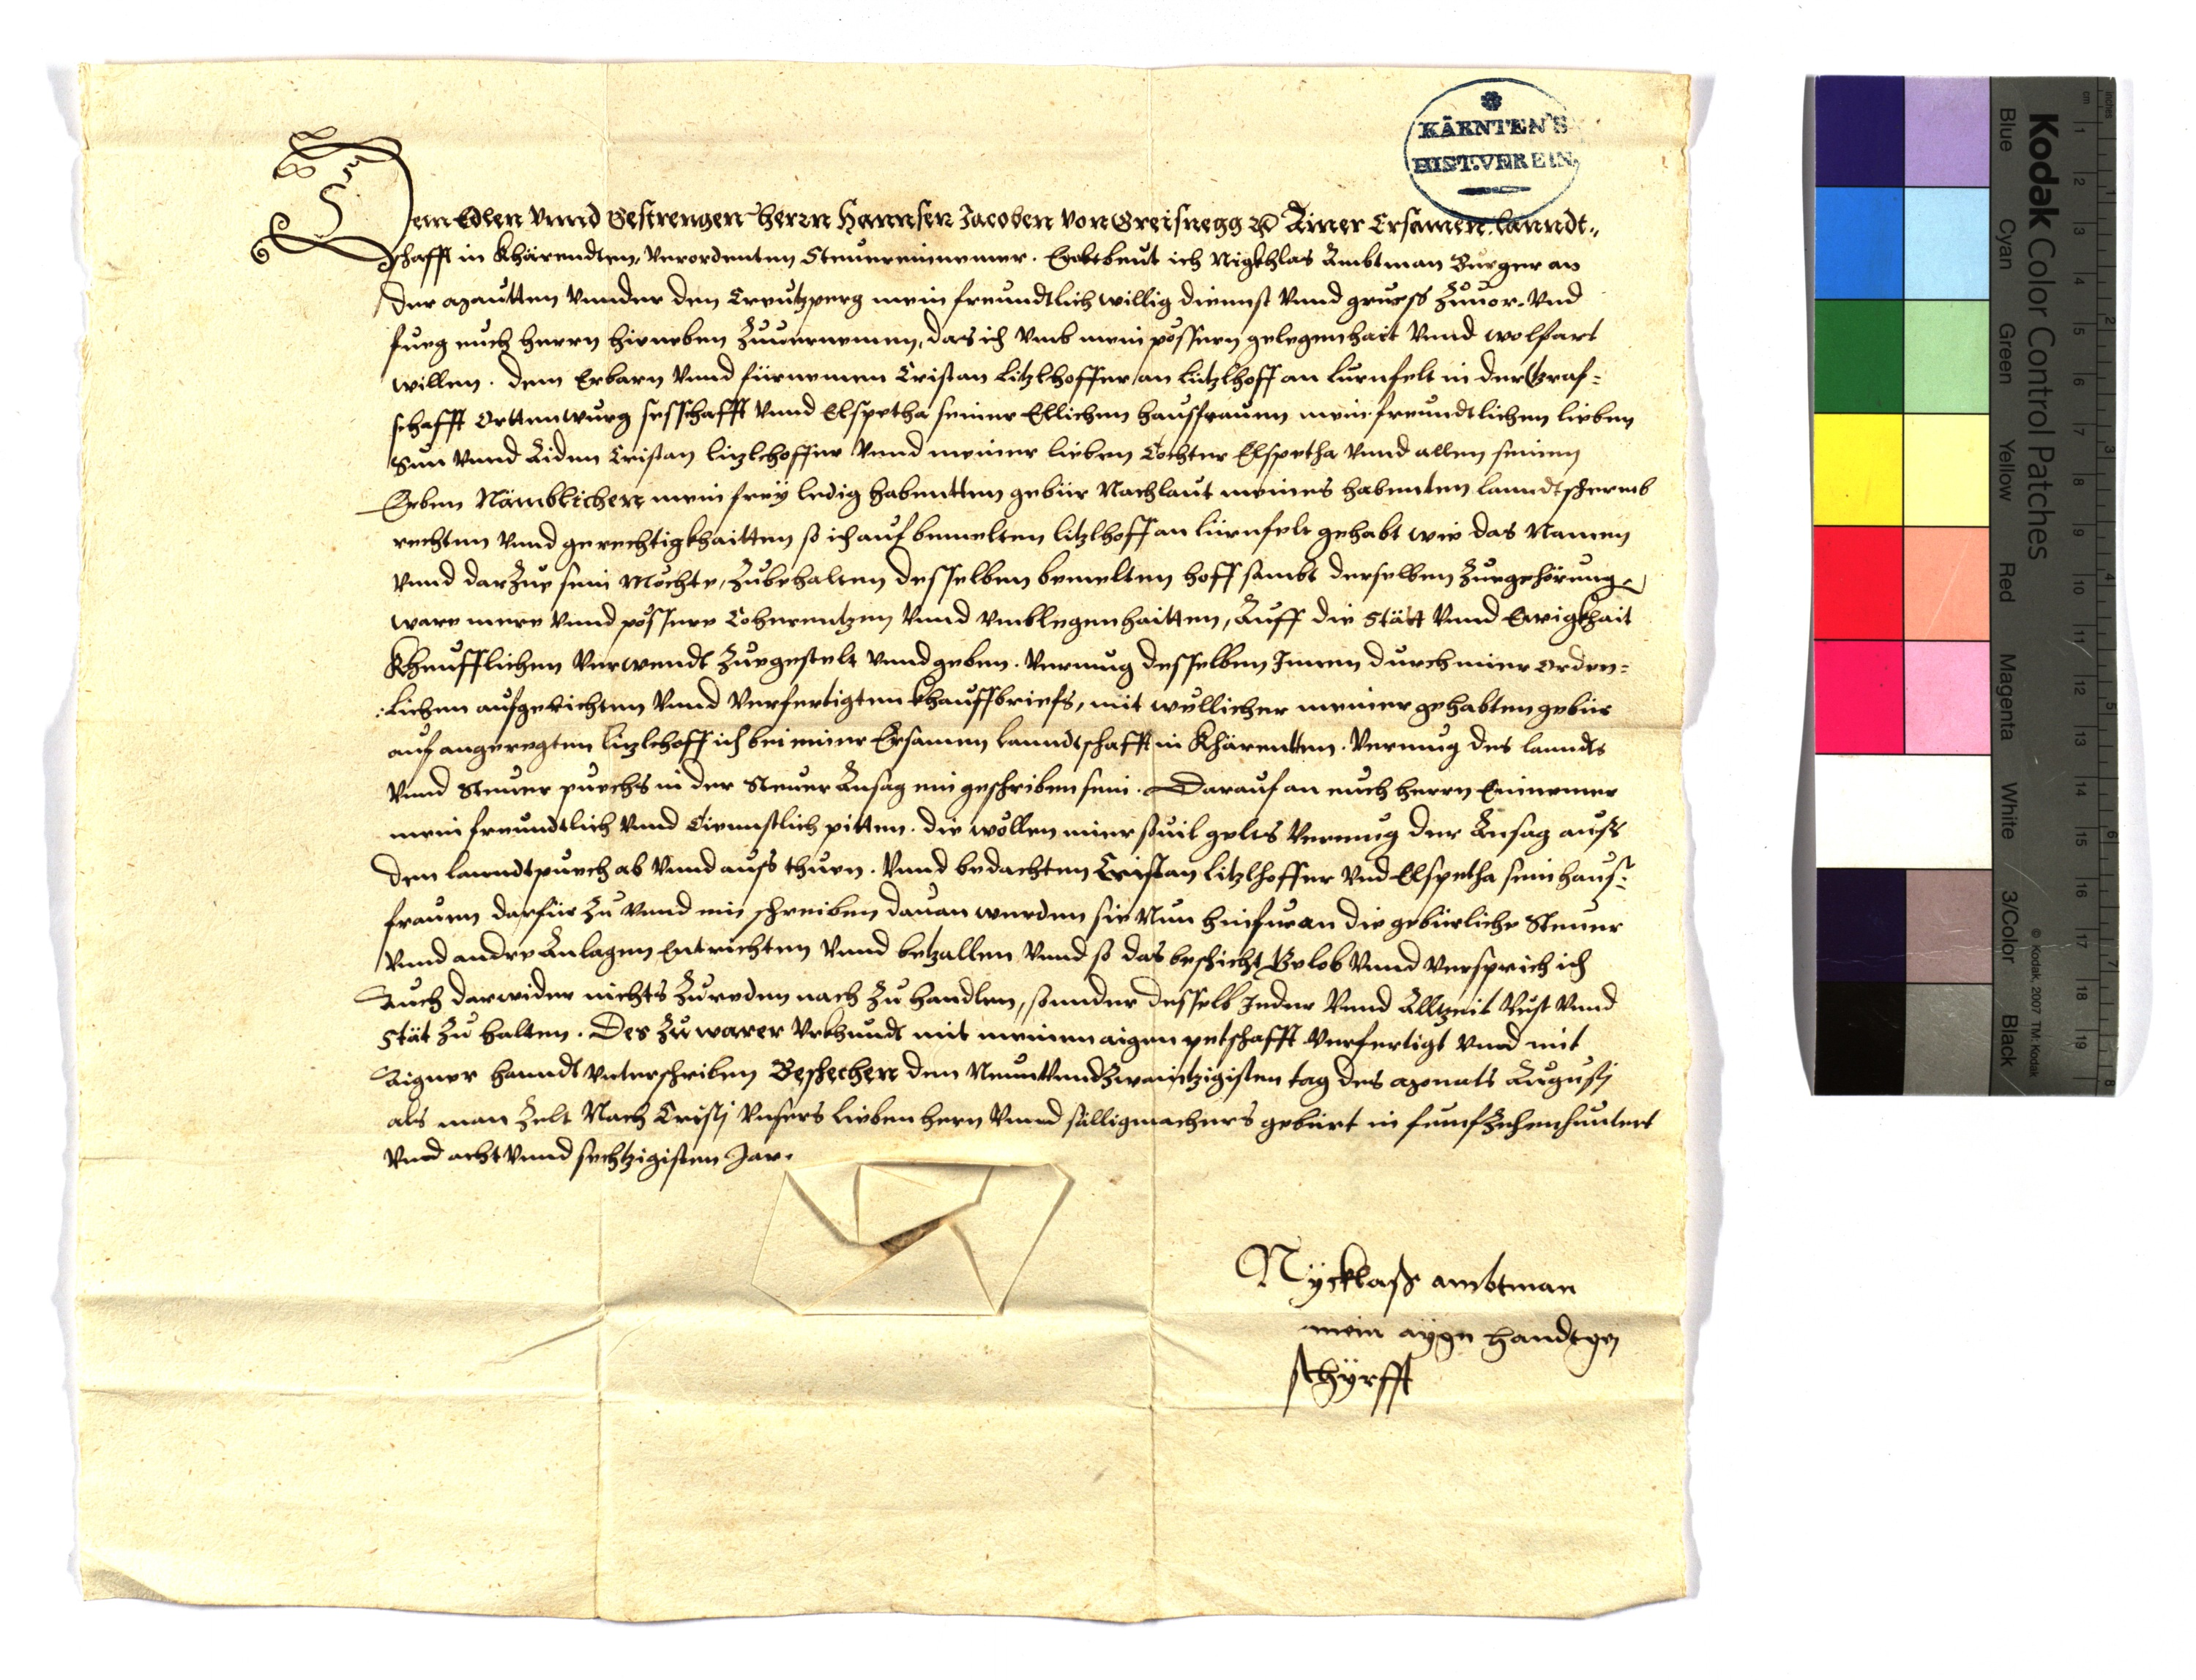 KÄRNTEN'S
HIST. VEREIN.
Dem Edlen Vnnd Gestrengen Herrn Hannsen Jacoben von Greisnegg Ainer Ersamen Lanndt„
schafft in Khärendten, Verordenten Steuereinnemer. Enbeut ich Nigkhlas Ambtman Burger an
der Mautten Vnnder den Creutzperg mein freundtlich willig diennst Vnnd gruess zuuor. Vnd
fueg euch herrn hieneben zuuernemen, das ich Vmb mein possern gelegenhait Vnnd wolfart
willen. dem Erbarn Vnnd fürnemen Cristan Litzlhoffer an Litzlhoff an Lurnfelt in der Graf=
schafft Orttenwurg sesshafft Vnnd Elspetha seiner Ellichen hausfrauen mein freundtlichen lieben
Sun Vnnd Aiden Cristan litzlhoffer Vnnd meiner lieben Tochter Elspetha Vnnd allen seinen
Erben Nämblichen mein freÿ ledig habentten gebür Nachlaut meines habenten lanndtschermb
rechten Vnnd gerechtigkhaitten so ich auf bemelten litzlhoff an lürnfelt gehabt wie das Namen
Vnnd darzue sein Möchte, zubehalten desselben bemelten hoff sambt derselben zuegehörung
ware mere Vnnd possere Coherentzen Vnnd Vmblegenhaitten, Auff die Stätt Vnnd Ewigkhait
Kheufflichen Verwendt zuegestelt Vnnd geben. Vermug desselben Innen durch mier orden=
:lichen aufgerichten Vnnd Verfertigten khauffbriefs, mit wellicher meiner gehabten gebür
auf angeregten litzlhoff ich bei einer Ersamen lanndtschafft in Khärentten. Vermug des lanndts
Vnnd Steuer puechs in der Steuer Ansag eingeschriben sein. Darauf an euch herrn Einnemer
mein freundtlich Vnnd diennstlich pitten. die wollen mier souil gelts Vermug der Ansag auss
den lanndtpuech ab Vnnd auss thuen. Vnnd bedachten Cristan litzlhoffer Vnd Elspetha sein hauss=
frauen darfür zu Vnnd ein schreiben dauan werden sie Nun hinfuran die gebürliche Steuer
Vnnd andre Anlagen Entrichten Vnnd betzallen Vnnd so das beschicht Gelob Vnnd Versprich ich
Auch darwider nichts zureden nach zu handlen, sonnder desselb Jeder Vnnd Alltzeit Vest Vnnd
Stät zu halten. Des zu warer Vrkhundt mit meinem aigen petschafft Verfertigt Vnnd mit
Aigner hanndt Vnterschriben Beschechen den Neuntvendzwaintzigisten tag des Monats Augustj
als man zelt Nach Cristj Vnsers lieben hern Vnnd sälligmachers gebürt in funfzehenhuntert
Vnnd acht Vnnd sechtzigisten Jar.
Nÿcklass ambtman
mein aÿgn handtge
schÿrfft
Kodak Color Control Patches
Blue
Cyan
Green
Yellow
Red
Magenta
White
3/Color
Black
© Kodak, 2007 TM: Kodak
inches
cm
1
2
3
4
5
6
7
8
9
10
11
12
13
14
15
16
17
18
19
1
2
3
4
5
6
7
8